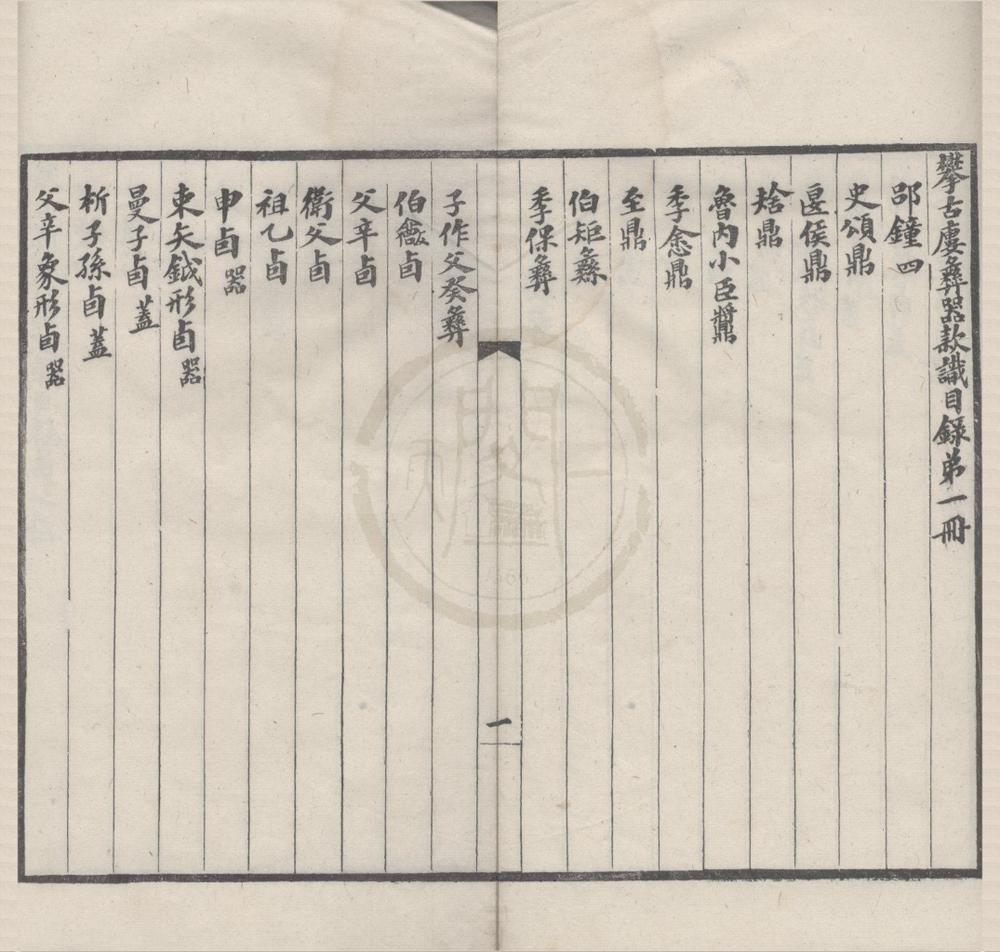 攀古廔彞器款識目錄弟一冊
郘鐘四
史頌鼎
匽侯鼎
㝬鼎
魯內小臣鼎
季悆鼎
至鼎
伯矩彞
季保彞
一
子作父癸彞
伯龢卣
父辛卣
衞父卣
祖乙卣
申卣 器
束矢鉞形卣 器
曼子卣 蓋
析子孫卣 蓋
父辛象形卣 器